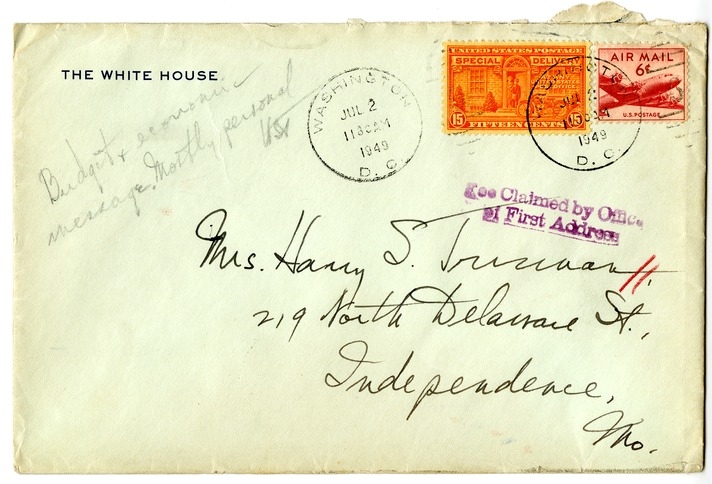 THE WHITE HOUSE
Budget & economic
message. Mostly personal
WASHINGTON
JUL 2
1130AM
1949
D. C.
UNITED STATES POSTAGE
SPECIAL DELIVERY
15 FIFTEEN CENTS 15
AIR MAIL
6¢
U.S. POSTAGE
WASHINGTON
JUL 2
1130AM
1949
D. C.
Fee Claimed by Office
of First Address
Mrs. Harry S. Truman,
219 North Delaware St.,
Independence,
Mo.